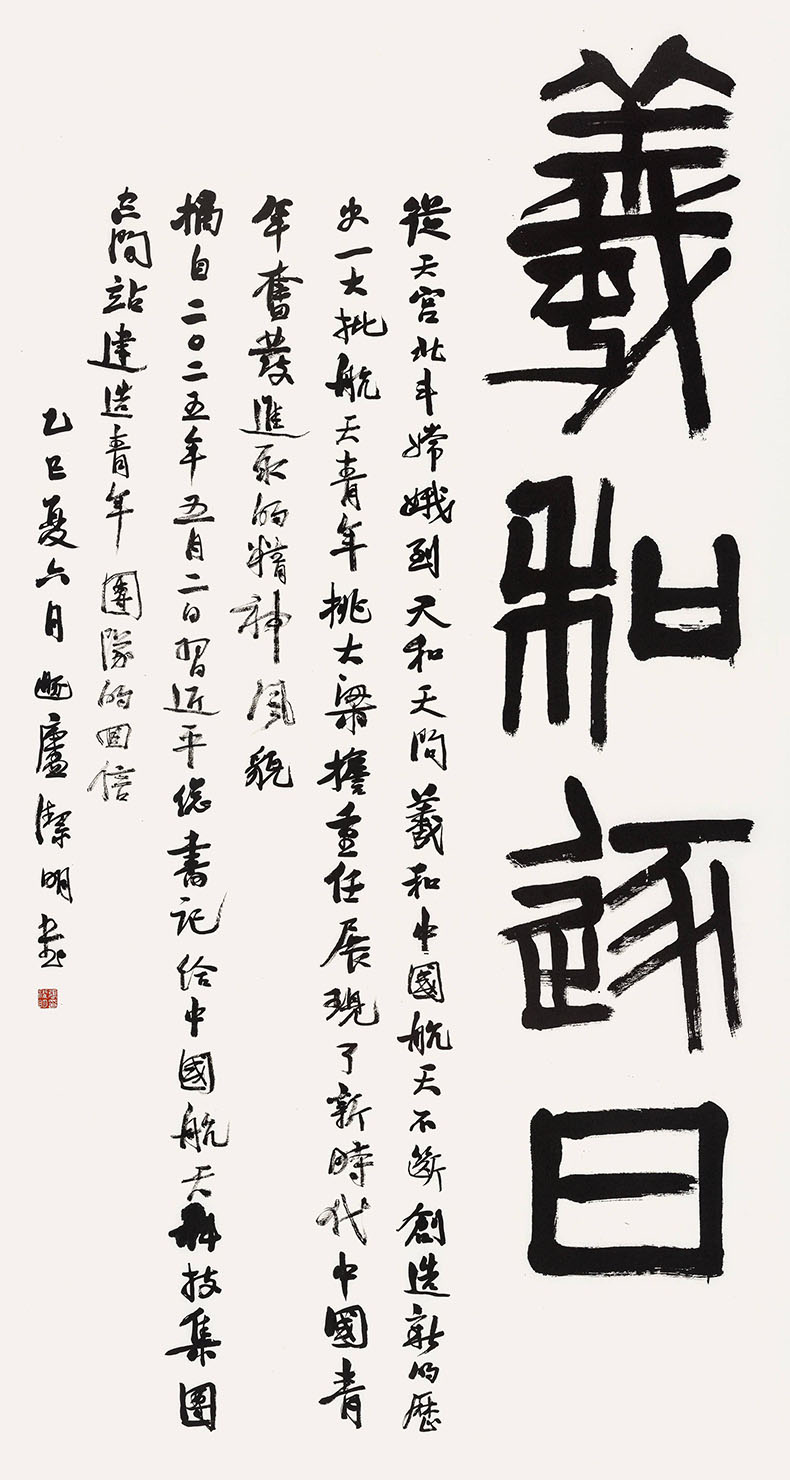 羲和逐日
從天宫北斗嫦娥到天和天問羲和中國航天不斷創造新的歷
史一大批航天青年挑大梁擔重任展現了新時代中國青
年奮發進取的精神風貌
摘自二〇二五年五月二日習近平總書記給中國航天科技集團
空間站建造青年團隊的回信
乙巳夏六月 廬潔明書